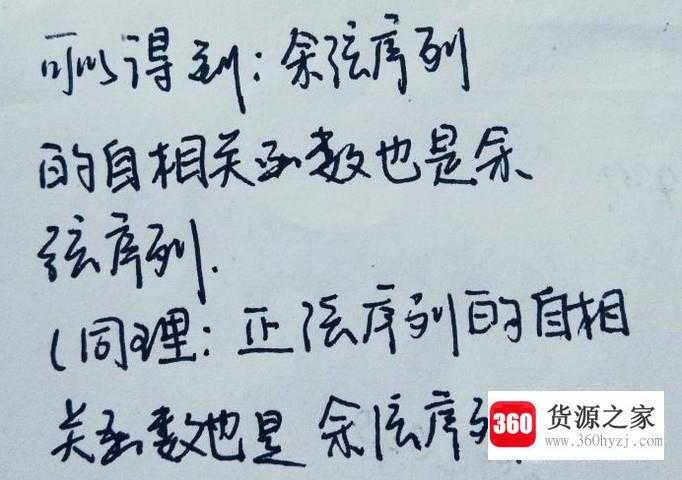 可以得到：余弦序列
的自相关函数也是余
弦序列.
(同理：正弦序列的自相
关函数也是 余弦序列
360 货源之家
www.360hyzj.com